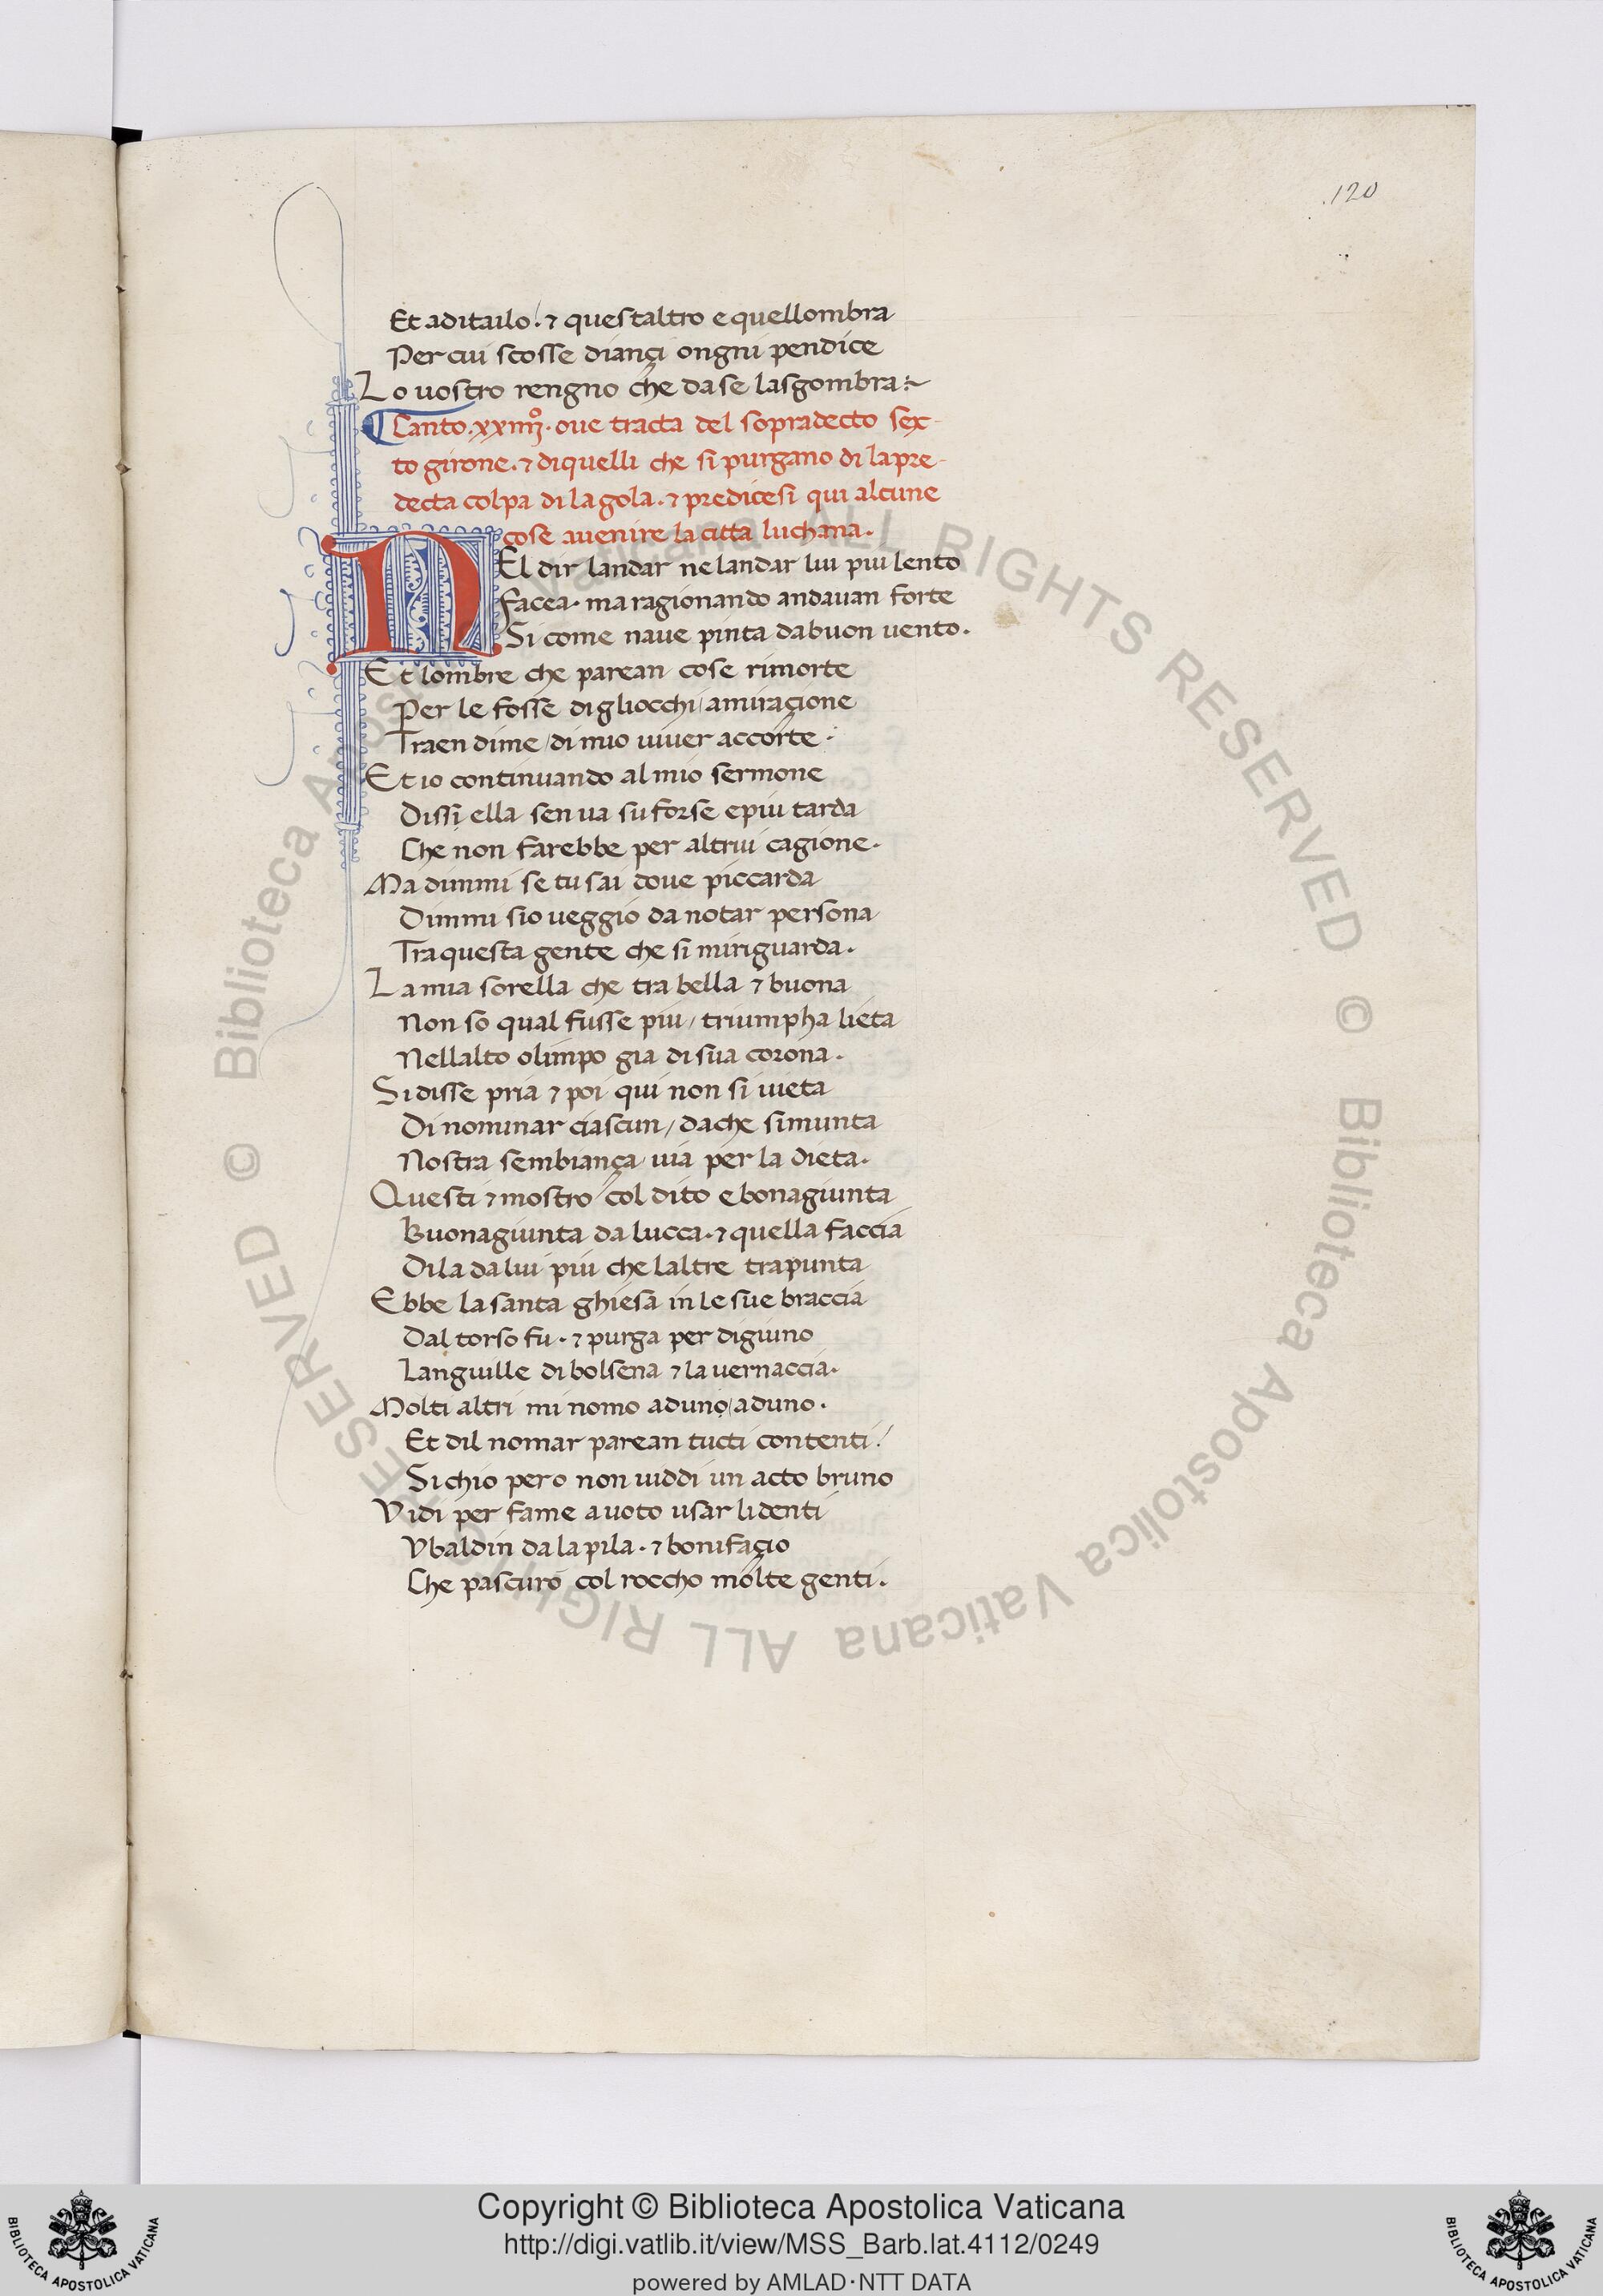 .120
Et aditailo. ⁊ questaltro e quellombra
Per cui scosse diançi ongni pendice
Lo uostro rengno che dase lasgombra:~
Canto.xxiiijº. oue tracta del sopradecto sex-
to girone. ⁊ diquelli che si purgano di lapre-
decta colpa di lagola. ⁊ predicesi qui alcune
cose auenire la citta luchana.
NEl dir landar ne landar lui piu lento
Facea. ma ragionando andauan forte
Si come naue pinta dabuon uento.
Et lombre che parean cose rimorte
Per le fosse di gliocchi/amiraçione
Traen dime/di mio uiuer accorte.
Et io continuando al mio sermone
Dissi ella sen ua su forse epiu tarda
Che non farebbe per altrui cagione.
Ma dimmi se tu sai doue piccarda
Dimmi sio ueggio da notar persona
Tra questa gente che si miriguarda.
La mia sorella che tra bella ⁊ buona
Non so qual fusse piu/triumpha lieta
Nellalto olimpo gia di sua corona.
Si disse pria ⁊ poi qui non si uieta
Di nominar ciascun/dache simunta
Nostra sembiança uia per la dieta.
Questi ⁊ mostro col dito e bonagiunta
Buonagiunta da lucca. ⁊ quella faccia
Dila dalui piu che laltre trapunta
Ebbe la santa ghiesa in le sue braccia
Dal torso fu. ⁊ purga per digiuno
Languille di bolsena ⁊ la uernaccia.
Molti altri mi nomo aduno/aduno.
Et dil nomar parean tucti contenti/
Sichio pero non uiddi un acto bruno
Vidi per fame auoto usar lidenti
Vbaldin da la pila. ⁊ bonifaçio
Che pasturo col roccho molte genti.
© Biblioteca Apostolica Vaticana ALL RIGHTS RESERVED
© Biblioteca Apostolica Vaticana ALL RIGHTS RESERVED
BIBLIOTECA APOSTOLICA VATICANA
Copyright © Biblioteca Apostolica Vaticana
http://digi.vatlib.it/view/MSS_Barb.lat.4112/0249
powered by AMLAD·NTT DATA
BIBLIOTECA APOSTOLICA VATICANA